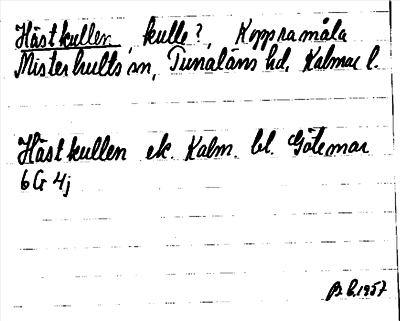 Hästkullen, kulle?, Koppramåla
Misterhults sn, Tunaläns hd. Kalmar l.
Hästkullen ek. Kalm. bl. Götemar
6G 4j
B.L. 1957